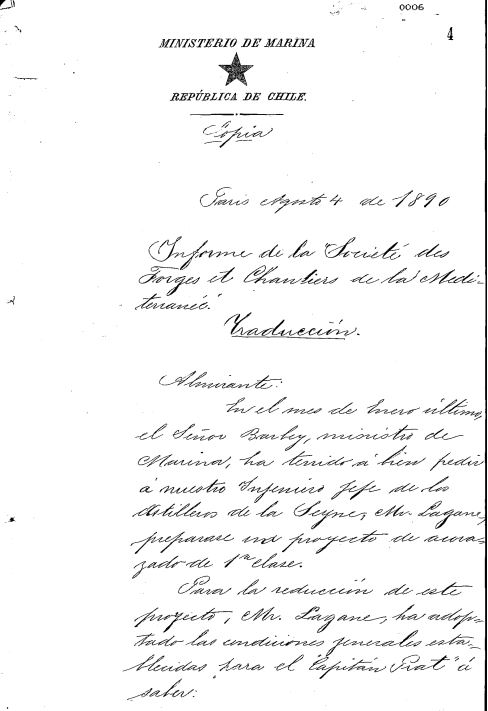 0006
4
MINISTERIO DE MARINA
REPÚBLICA DE CHILE.
Copia
Paris Agosto 4 de 1890
Informe de la Societé des
Forges et Chantiers de la Medi-
terranée.
Traducción.
Almirante:
En el mes de Enero último,
el Señor Barbey, ministro de
Marina, ha tenido á bien pedir
á nuestro Injeniero Jefe de los
Astilleros de la Seyne, Mr. Lagane,
preparase un proyecto de acora-
zado de 1ra clase.
Para la reducción de este
proyecto, Mr. Lagane, ha adop-
tado las condiciones jenerales esta-
blecidas para el "Capitán Prat" á
saber: